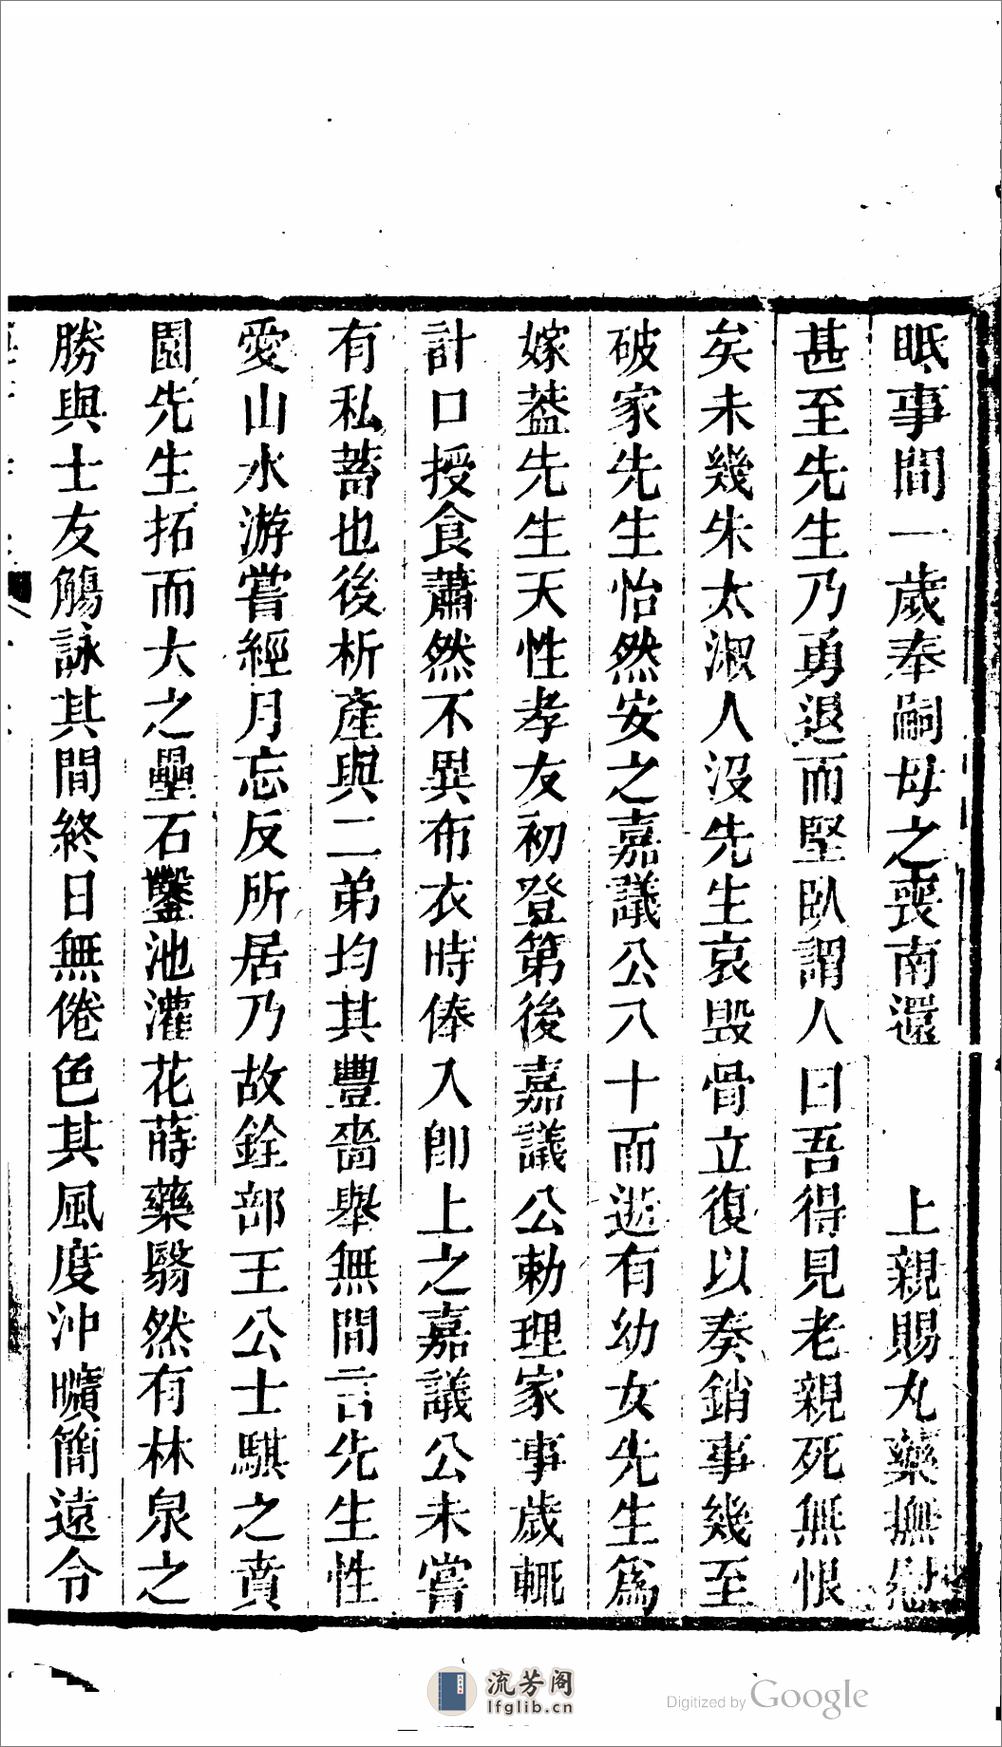 眡事間一歲奉嗣母之喪南還　　上親賜丸藥撫慰
甚至先生乃勇退而堅臥謂人曰吾得見老親死無恨
矣未幾朱太淑人沒先生哀毀骨立復以奏銷事幾至
破家先生怡然安之嘉議公八十而逝有幼女先生爲
嫁葢先生天性孝友初登第後嘉議公勅理家事歲輒
計口授食蕭然不異布衣時俸入卽上之嘉議公未嘗
有私蓄也後析產與二弟均其豐嗇舉無間言先生性
愛山水游嘗經月忘反所居乃故銓部王公士騏之賁
園先生拓而大之壘石鑿池灌花蒔藥翳然有林泉之
勝與士友觴詠其間終日無倦色其風度沖曠簡遠令
流芳阁
lfglib.cn
Digitized by Google